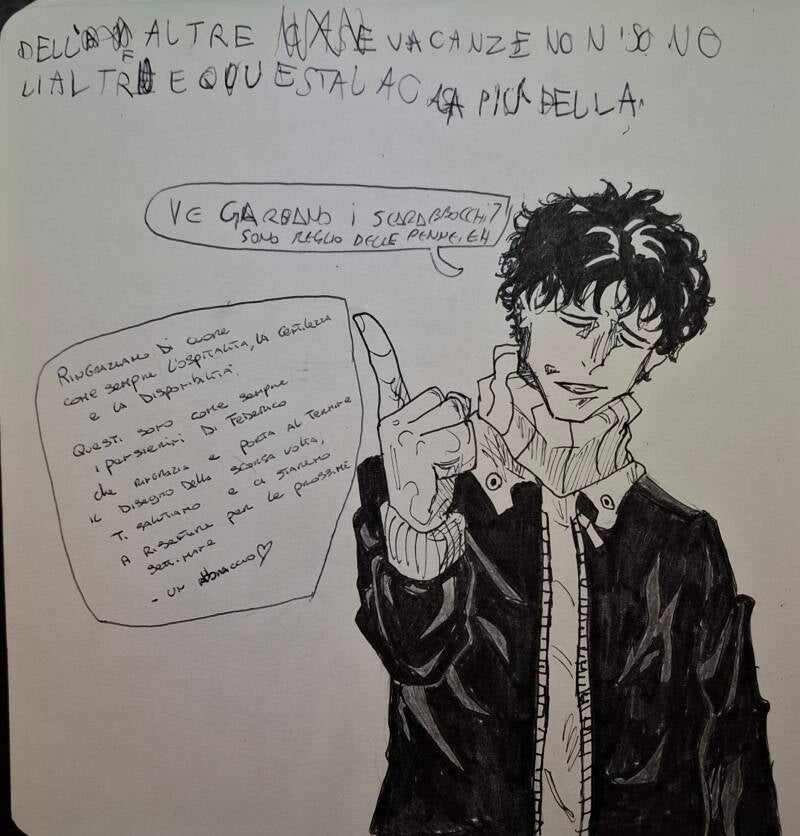 DELLE ALTRE VACANZE NON SONO
L'ALTRE E QUESTA LA PIU BELLA.
VE GARBANO i SCARABBOCCHI?
SONO MEGLIO DELLE PENNE, EH
RINGRAZIAMO DI CUORE
COME SEMPRE L'OSPITALITA, LA GENTILEZZA
E LA DISPONIBILITA.
QUESTI SONO COME SEMPRE
i PENSIERINI DI FEDERICO
CHE RINGRAZIA E PORTA AL TERMINE
IL DISEGNO DELLA SCORSA VOLTA,
TI SALUTIAMO E CI STAREMO
A RISENTIRE PER LE PROSSIME
SETTIMANE
- UN ABBRACCIO♡